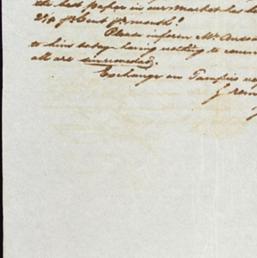 the best paper in our market has be
2½ pr Cent pr month!
Please inform Mr. Ander
to him today having nothing to comm
all are unremoded.
Exchange on Tampico
I rem